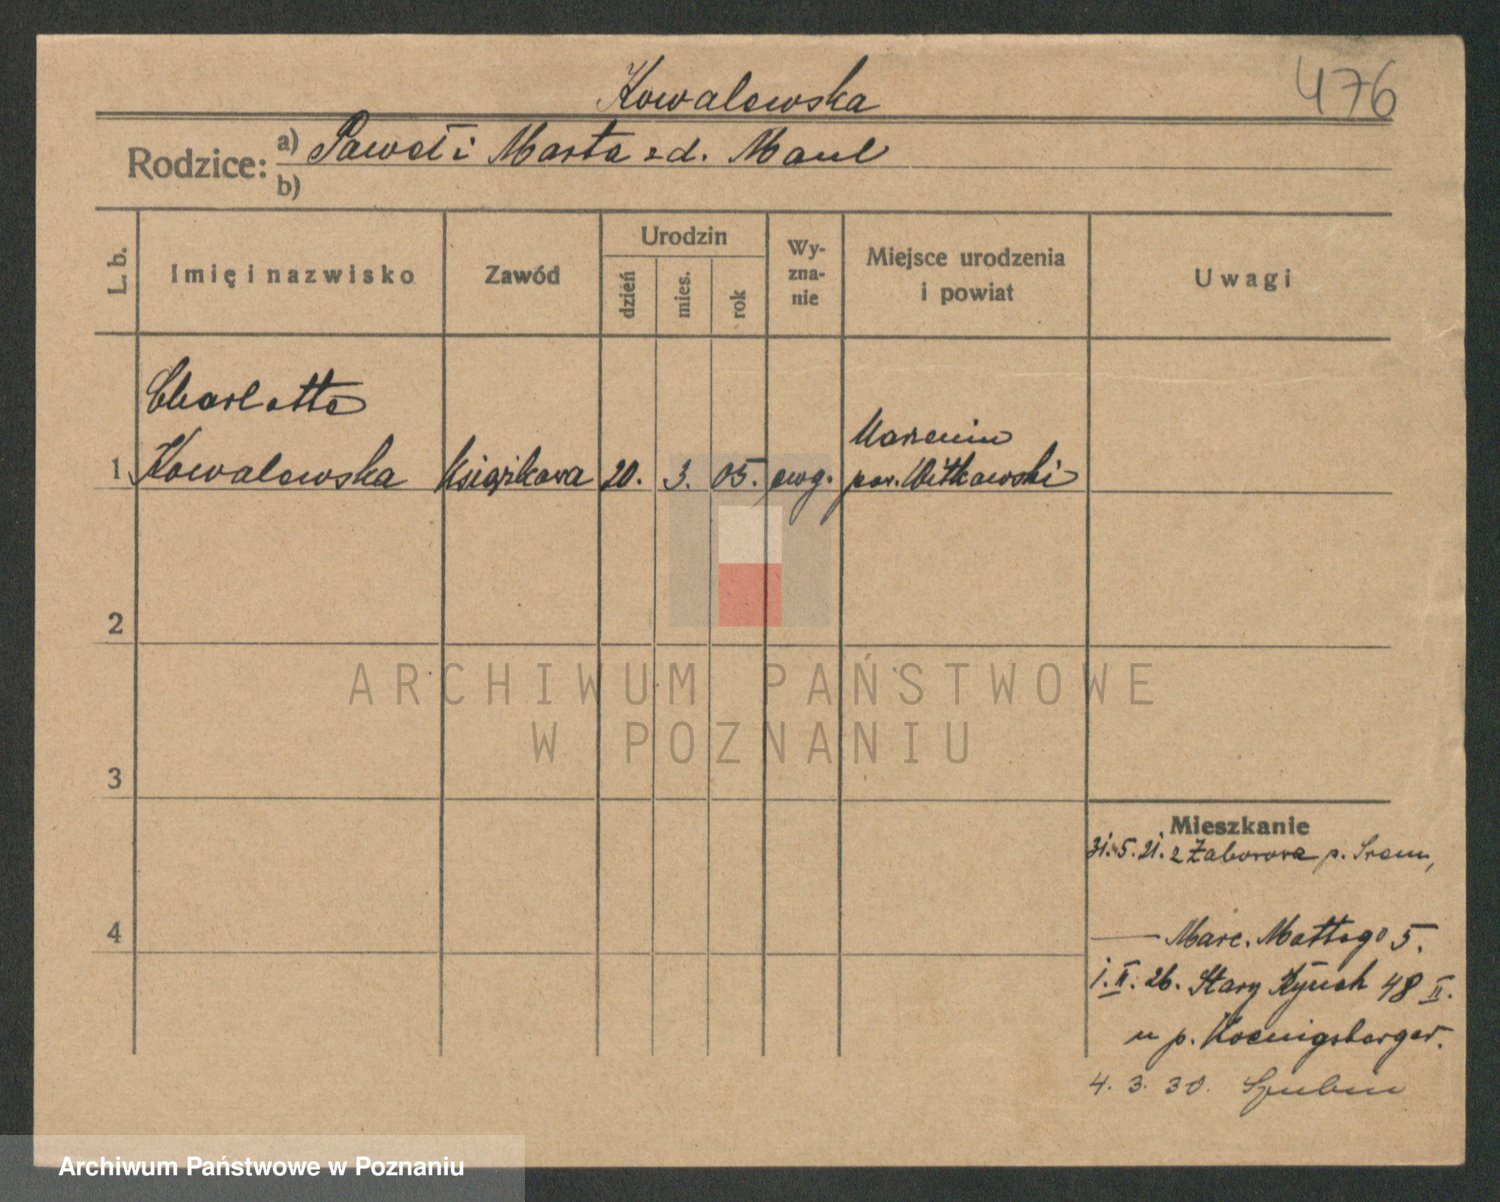 Kowalewska
476
Rodzice: a) Paweł i Marta zd. Maul
b)
L. b.
Imię i nazwisko
Zawód
Urodzin
dzień
mies.
rok
Wy-
zna-
nie
Miejsce urodzenia
i powiat
Uwagi
Charlotte
Marzenin
1. Kowalewska Książkowa 20. 3. 05. ewg. pow. Witkowski
2
ARCHIWUM PAŃSTWOWE
W POZNANIU
3
Mieszkanie
31. 5. 21. z Zaborowa p. Srem,
4
— Marc. Mottego 5.
1. II. 26. Stary Rynek 48 II.
u p. Koenigsberger.
4. 3. 30. Szubin
Archiwum Państwowe w Poznaniu